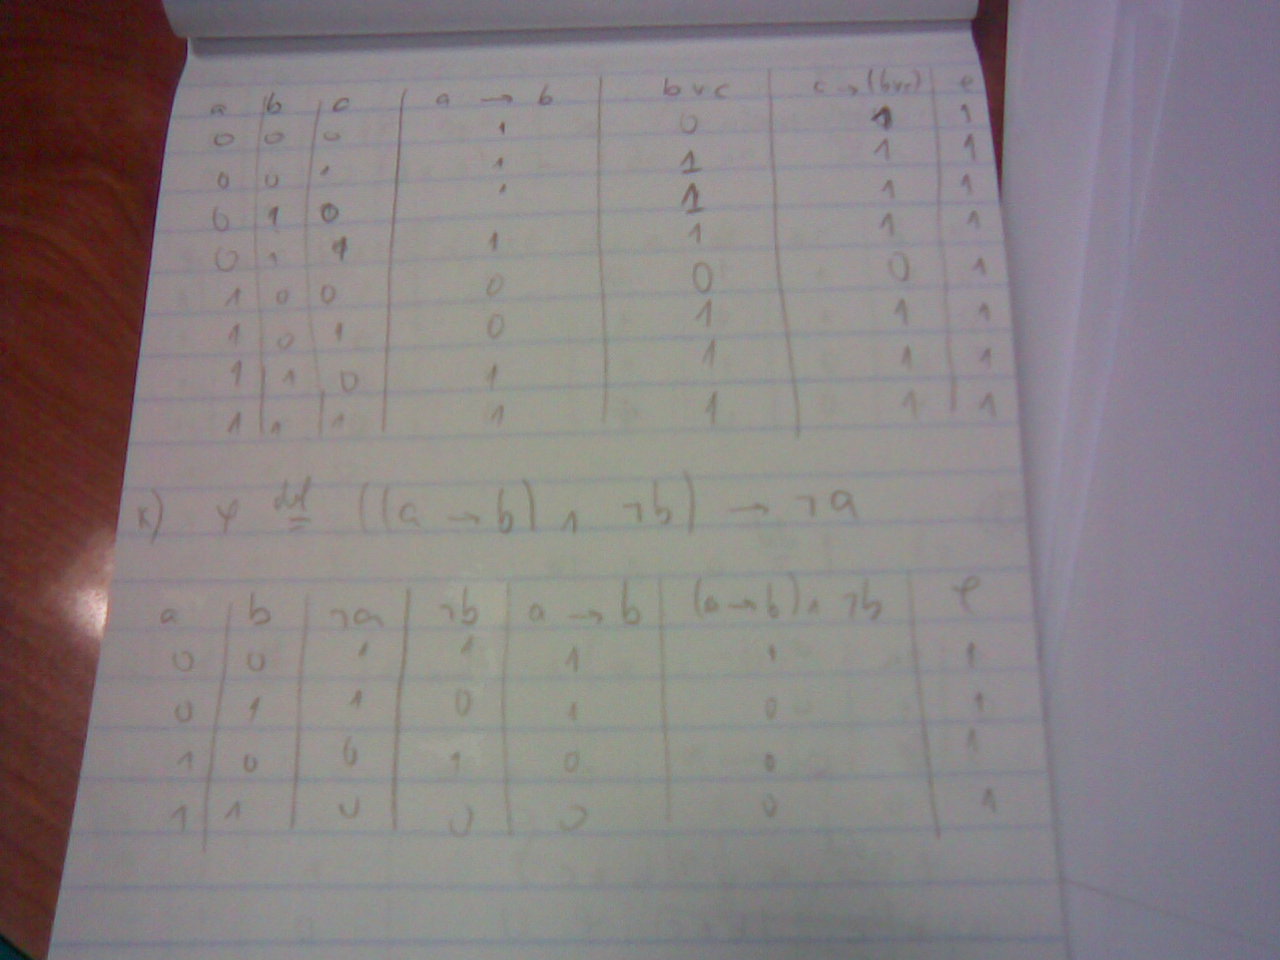 a b c a → b b ∨ c c → (b∨c) φ
0 0 0 1 0 1 1
0 0 1 1 1 1 1
0 1 0 1 1 1 1
0 1 1 1 1 1 1
1 0 0 0 0 0 1
1 0 1 0 1 1 1
1 1 0 1 1 1 1
1 1 1 1 1 1 1
k) φ def= ((a → b) ∧ ¬b) → ¬a
a b ¬a ¬b a → b (a→b) ∧ ¬b φ
0 0 1 1 1 1 1
0 1 1 0 1 0 1
1 0 0 1 0 0 1
1 1 0 0 0 0 1